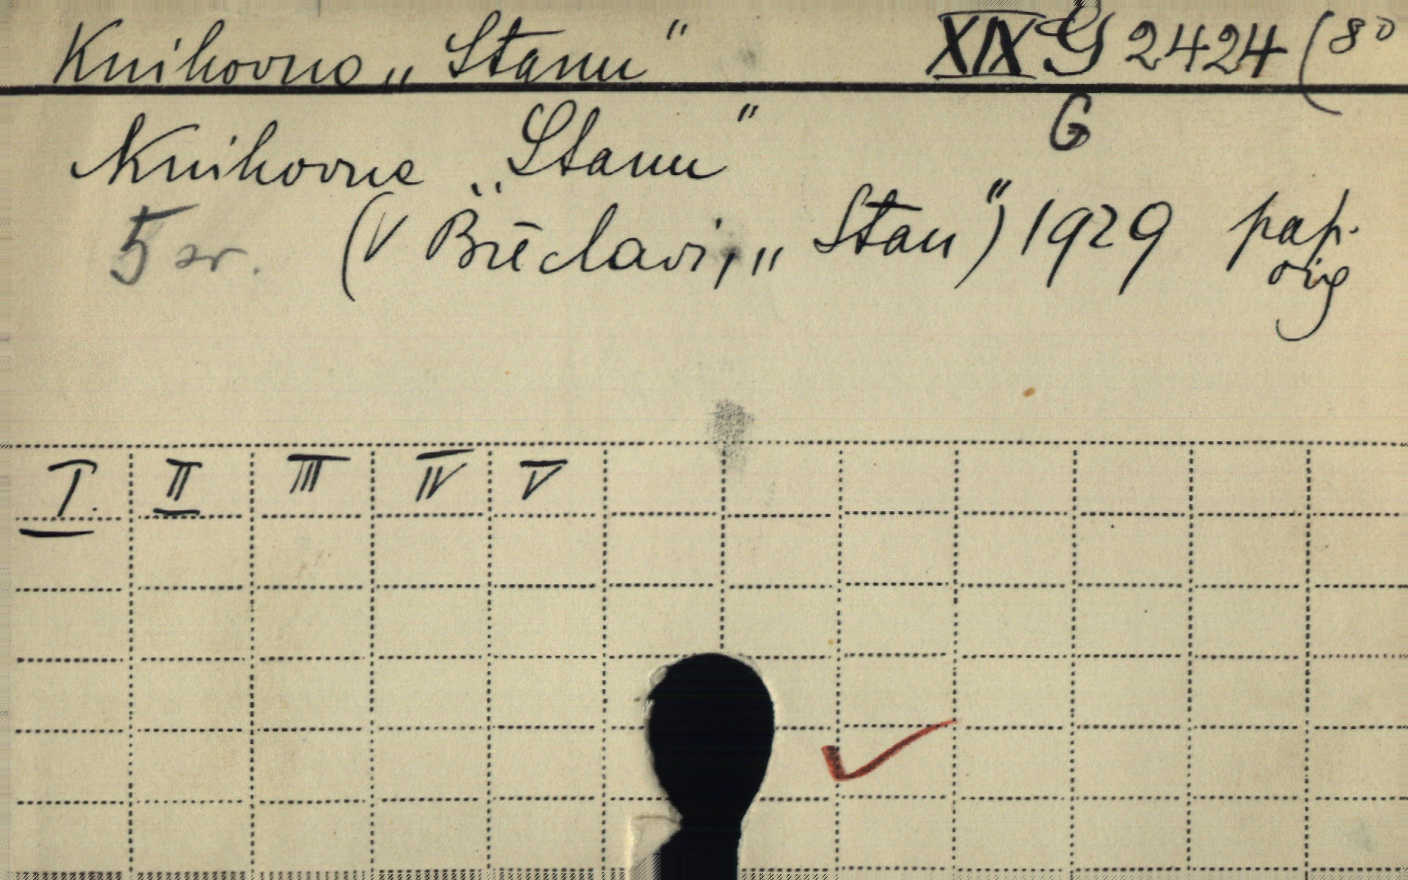 Knihovna „Stanu" XIX G 2424 (8°
G
Knihovna „Stanu"
5 sv. (V Břeclavi, „Stan") 1929 pap.
orig
I. II III IV V